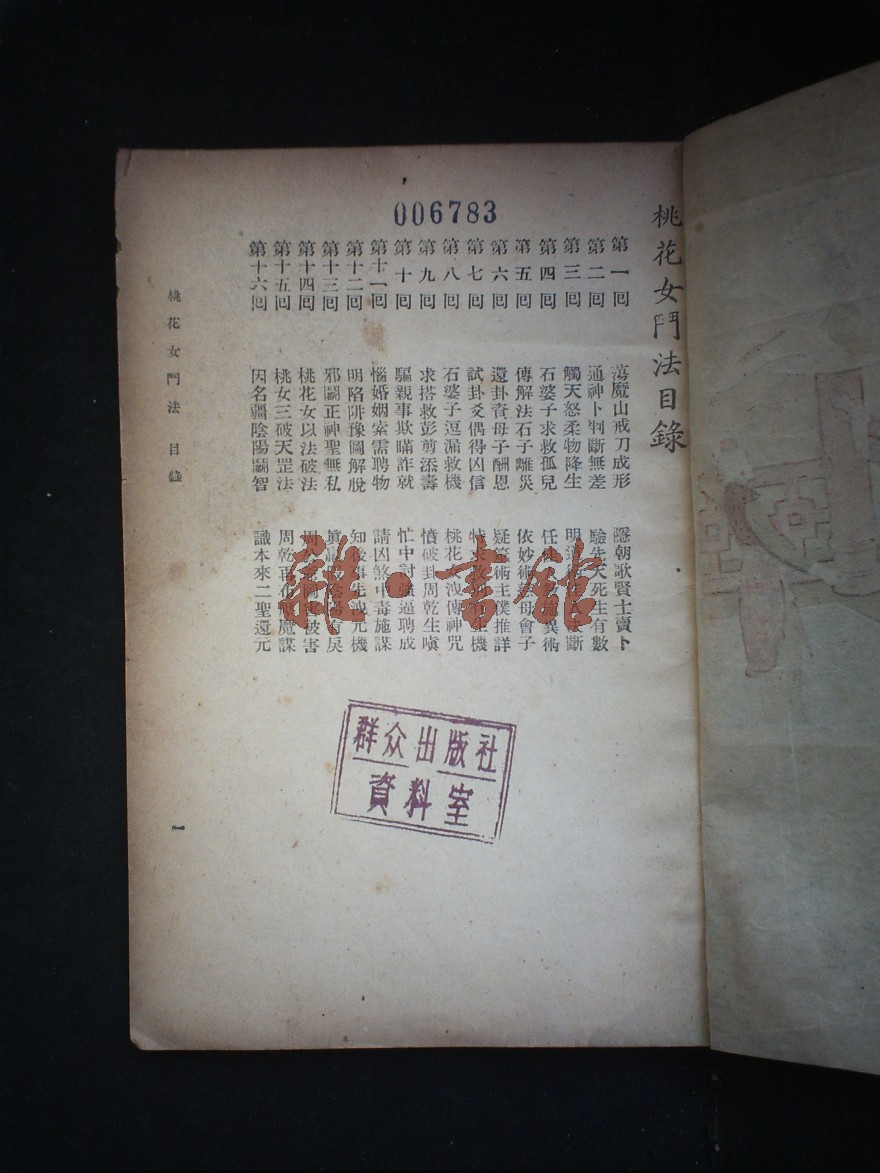 006783
桃花女鬥法目錄
第一回 蕩魔山戒刀成形 隱朝歌賢士賣卜
第二回 通神卜判斷無差 驗先天死生有數
第三回 觸天怒柔物降生 明道術斷
第四回 石婆子求救孤兒 任異術
第五回 傳解法石子離災 依妙術母會子
第六回 還卦資母子酬恩 疑筮術主僕推詳
第七回 試卦爻偶得凶信 特求救生機
第八回 石婆子逗漏救機 桃花女洩傳神咒
第九回 求搭救彭剪添壽 憤破卦周乾生嗔
第十回 騙親事欺瞞詐就 忙中討強逼聘成
第十一回 惱婚姻索需聘物 請凶煞中毒施謀
第十二回 明陷阱豫圖解脫 知後事先洩元機
第十三回 邪鬭正神聖無私 陰陽有戾
第十四回 桃花女以法破法 周被害
第十五回 桃女三破天罡法 周乾再魔謀
第十六回 因名疆陰陽鬭智 識本來二聖還元
桃花女鬥法 目錄
一
雜·書館
群众出版社
資料室